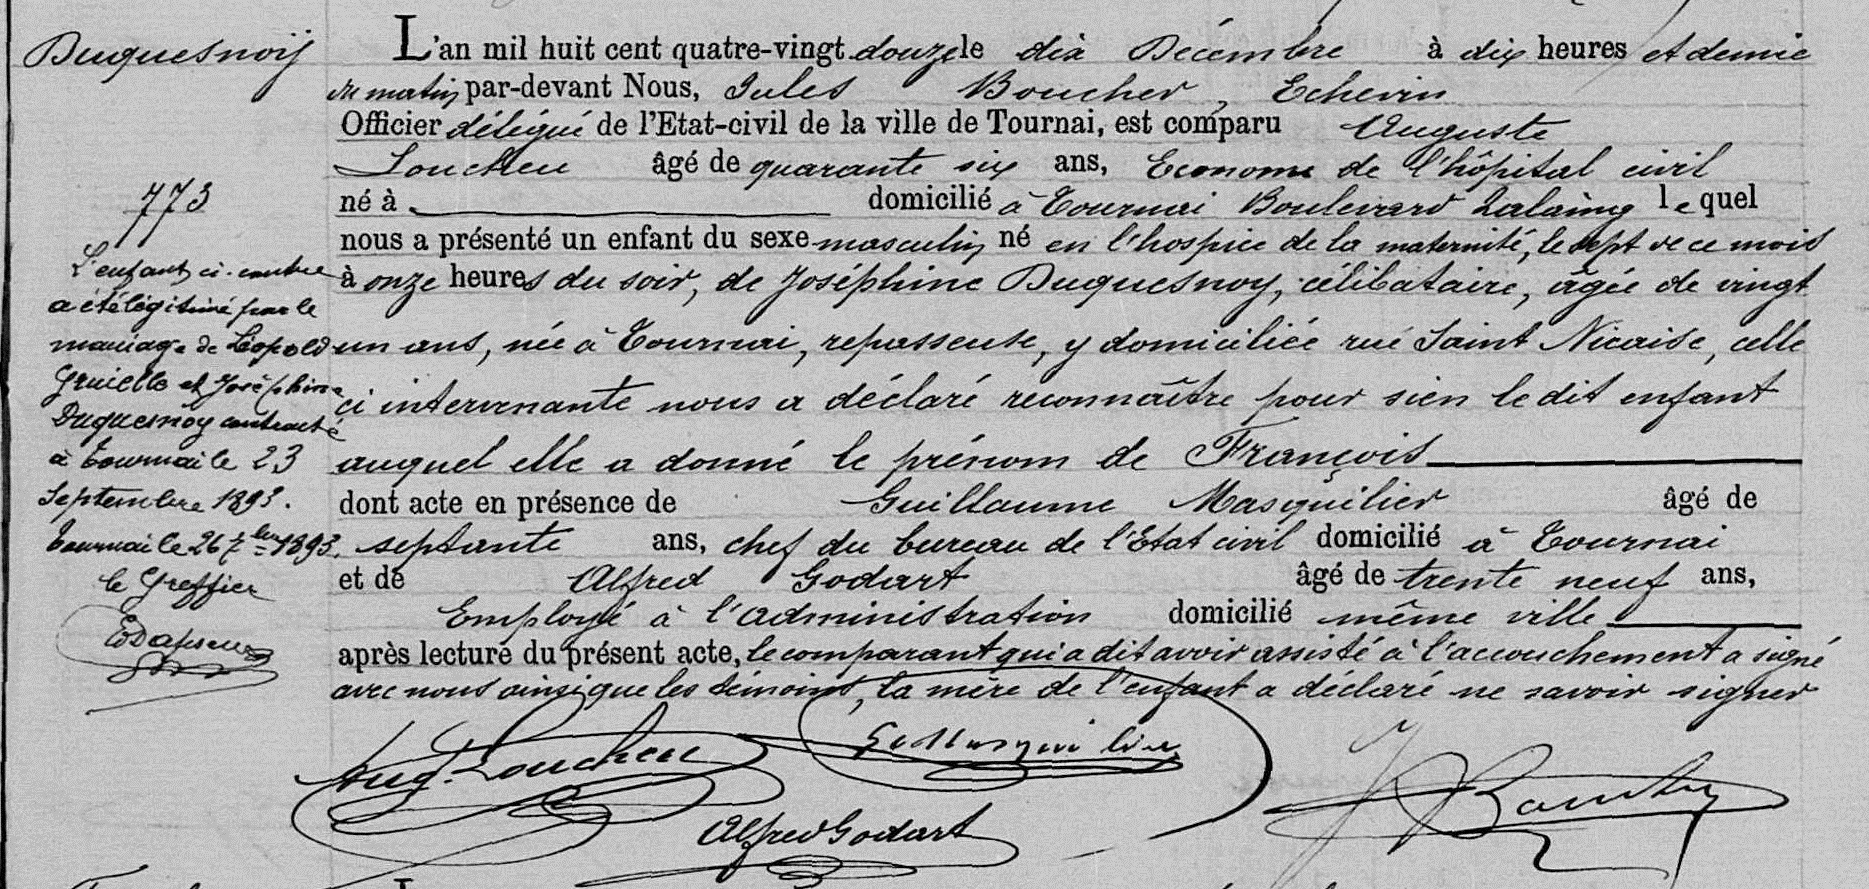 Duquesnoij
773
L'enfant ci-contre
a été légitimé par le
mariage de Léopold
et Joséphine
Duquesnoy contracté
à Tournai le 23
Septembre 1893.
Tournai le 26 7bre 1893.
le Greffier
L'an mil huit cent quatre-vingt douze le dix Décembre à dix heures et demie
du matin par-devant Nous, Jules Boucher, Echevin
Officier délégué de l'Etat-civil de la ville de Tournai, est comparu Auguste
Loucheu âgé de quarante six ans, Econome de l'hôpital civil
né à domicilié à Tournai Boulevard Lalaing lequel
nous a présenté un enfant du sexe masculin né en l'hospice de la maternité, le sept de ce mois
à onze heures du soir, de Joséphine Duquesnoy, célibataire, âgée de vingt
un ans, née à Tournai, repasseuse, y domiciliée rue Saint Nicaise, celle
ci intervenante nous a déclaré reconnaître pour sien le dit enfant
auquel elle a donné le prénom de François
dont acte en présence de Guillaume Masquilier âgé de
septante ans, chef du bureau de l'Etat civil domicilié à Tournai
et de Alfred Godart âgé de trente neuf ans,
Employé à l'administration domicilié même ville
après lecture du présent acte, le comparant qui a dit avoir assisté à l'accouchement a signé
avec nous ainsi que les témoins, la mère de l'enfant a déclaré ne savoir signer
Aug. Loucheu
G Masquilier
J Boucher
Alfred Godart